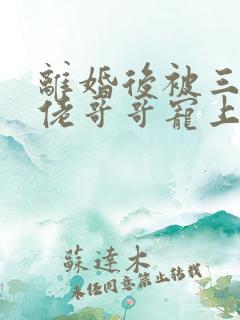 離婚後被三
佬哥哥寵上
蘇達木
未經同意禁止轉載